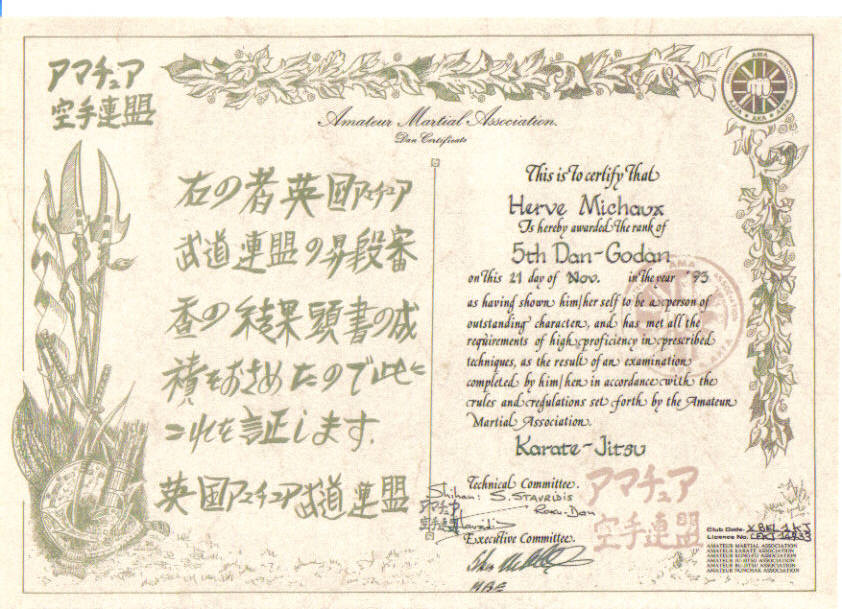 アマチュア
空手連盟
Amateur Martial Association.
Dan Certificate
右の者英国アマチュア
武道連盟の昇段審
査の結果頭書の成
績をおさめたので此に
これを証します.
英国アマチュア武道連盟
This is To certify That
Herve Michaux
Is hereby awarded The rank of
5th Dan-Godan
on This 21 day of Nov. in The year '93
as having shown him/her self to be a person of
outstanding character, and has met all the
requirements of high proficiency in prescribed
techniques, as the result of an examination
completed by him/her in accordance with the
rules and regulations set forth by the Amateur
Martial Association.
Karate-Jitsu
Technical Committee.
Shihan: S. STAVRIDIS
Roku-Dan
アマチュア
空手連盟
Executive Committee.
MBE
アマチュア
空手連盟
Club Code.
Licence No.
AMATEUR MARTIAL ASSOCIATION
AMATEUR KARATE ASSOCIATION
AMATEUR KUNG FU ASSOCIATION
AMATEUR JU-JITSU ASSOCIATION
AMATEUR BU-JITSU ASSOCIATION
AMATEUR NUNCHAK ASSOCIATION